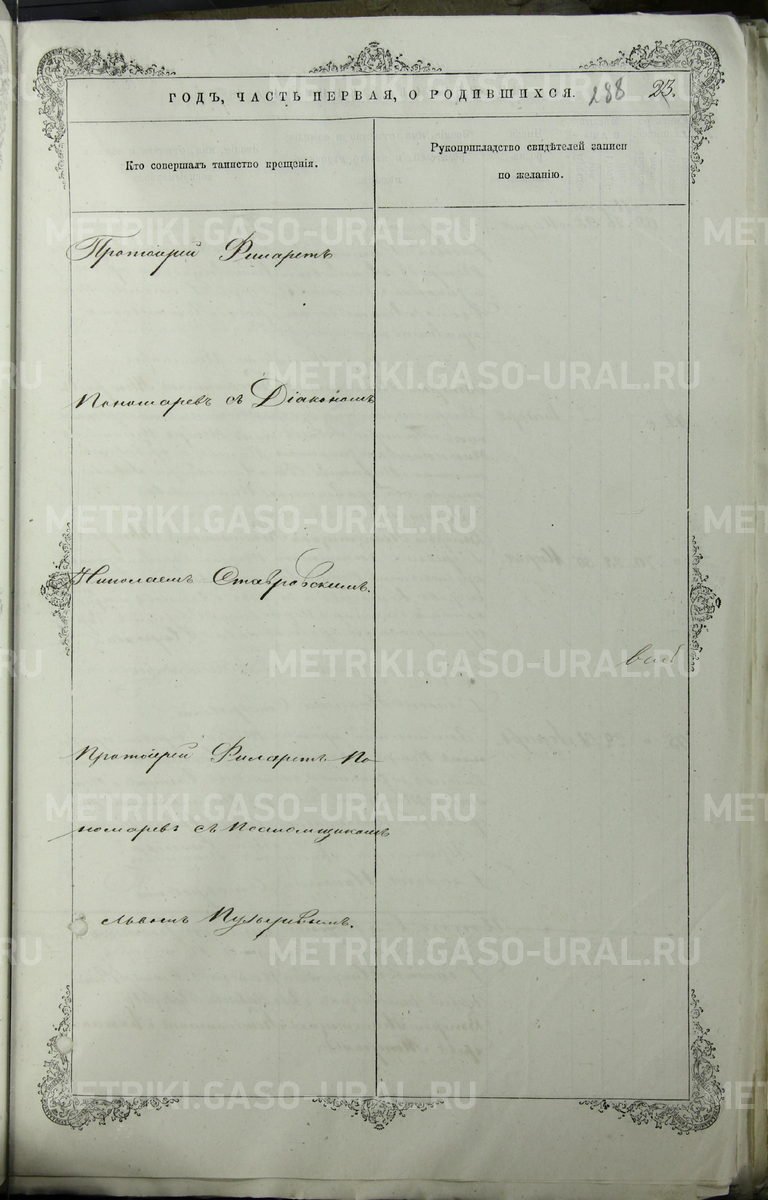 ГОДЪ, ЧАСТЬ ПЕРВАЯ, О РОДИВШИХСЯ. 288 23.
Кто совершалъ таинство крещенія.
Рукоприкладство свидѣтелей записи
по желанію.
Протоіерей Филаретъ
Пономаревъ съ Діакономъ
Николаемъ Ставровскимъ.
Протоіерей Филаретъ По-
номаревъ съ Псаломщикомъ
Львомъ Пузыревымъ.
METRIKI.GASO-URAL.RU